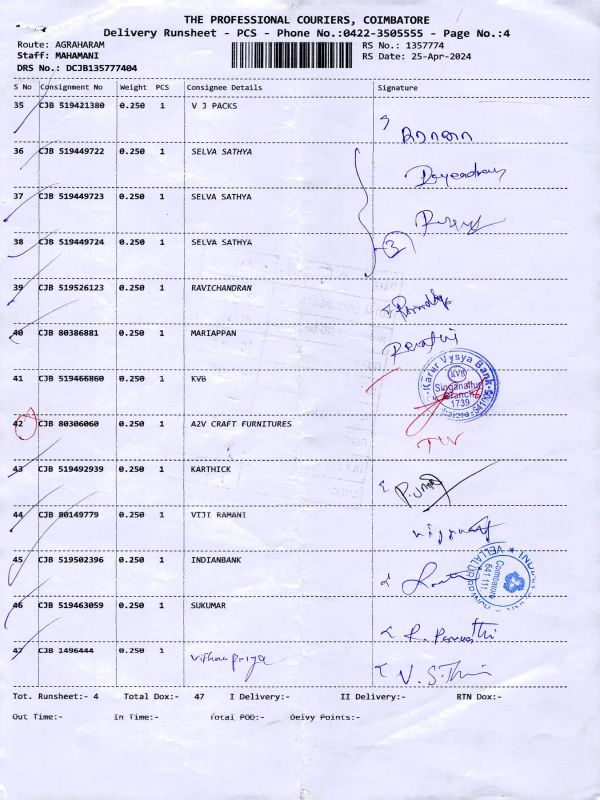 THE PROFESSIONAL COURIERS, COIMBATORE
Delivery Runsheet - PCS - Phone No.:0422-3505555 - Page No.:4
Route: AGRAHARAM RS No.: 1357774
Staff: MAHAMANI RS Date: 25-Apr-2024
DRS No.: DCJB135777404
S No Consignment No Weight PCS Consignee Details Signature
35 CJB 519421380 0.250 1 V J PACKS
36 CJB 519449722 0.250 1 SELVA SATHYA
37 CJB 519449723 0.250 1 SELVA SATHYA
38 CJB 519449724 0.250 1 SELVA SATHYA 3
39 CJB 519526123 0.250 1 RAVICHANDRAN
40 CJB 80386881 0.250 1 MARIAPPAN Revathi
41 CJB 519466860 0.250 1 KVB
Karur Vysya Bank
KVB
Singanallur
Branch
1739
42 CJB 80306060 0.250 1 A2V CRAFT FURNITURES
43 CJB 519492939 0.250 1 KARTHICK
44 CJB 80149779 0.250 1 VIJI RAMANI
45 CJB 519502396 0.250 1 INDIANBANK
Coimbatore
641 111
46 CJB 519463059 0.250 1 SUKUMAR
47 CJB 1496444 0.250 1 Vishnu priya
Tot. Runsheet:- 4 Total Dox:- 47 I Delivery:- II Delivery:- RTN Dox:-
Out Time:- In Time:- Total POD:- Delvy Points:-